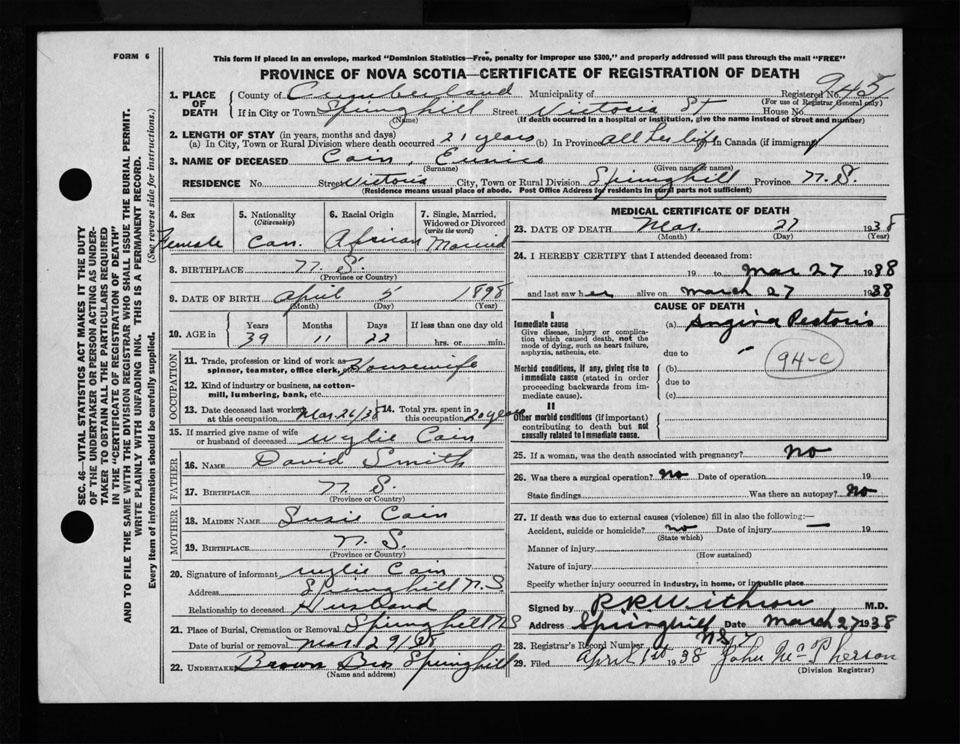 FORM 6
This form if placed in an envelope, marked "Dominion Statistics—Free, penalty for improper use $300," and properly addressed will pass through the mail "FREE"
PROVINCE OF NOVA SCOTIA—CERTIFICATE OF REGISTRATION OF DEATH
1. PLACE OF DEATH
County of Cumberland Municipality of Registered No. 945
(For use of Registrar General only)
If in City or Town Springhill Street Victoria St House No.
(Name) (If death occurred in a hospital or institution, give the name instead of street and number)
2. LENGTH OF STAY (in years, months and days)
(a) In City, Town or Rural Division where death occurred 21 years (b) In Province All her life In Canada (if immigrant)
3. NAME OF DECEASED Cain, Eunice
(Surname) (Given name or names)
RESIDENCE No. Street Victoria City, Town or Rural Division Springhill Province N. S.
(Residence means usual place of abode. Post Office Address for residents in rural parts not sufficient)
4. Sex Female
5. Nationality (Citizenship) Can.
6. Racial Origin African
7. Single, Married, Widowed or Divorced (write the word) Married
8. BIRTHPLACE N. S.
(Province or Country)
9. DATE OF BIRTH April 5 1898
(Month) (Day) (Year)
10. AGE in Years Months Days If less than one day old
39 11 22 hrs. or min.
OCCUPATION
11. Trade, profession or kind of work as spinner, teamster, office clerk, Housewife
12. Kind of industry or business, as cotton-mill, lumbering, bank, etc.
13. Date deceased last worked at this occupation Mar 26/38 14. Total yrs. spent in this occupation 20 years
15. If married give name of wife or husband of deceased Wylie Cain
FATHER
16. NAME David Smith
17. BIRTHPLACE N. S.
(Province or Country)
MOTHER
18. MAIDEN NAME Susie Cain
19. BIRTHPLACE N. S
(Province or Country)
20. Signature of informant Wylie Cain
Address Springhill N. S
Relationship to deceased Husband
21. Place of Burial, Cremation or Removal Springhill N S
Date of burial or removal Mar 29/38
22. Undertaker Brown Bros Springhill
(Name and address)
MEDICAL CERTIFICATE OF DEATH
23. DATE OF DEATH Mar. 27 1938
(Month) (Day) (Year)
24. I HEREBY CERTIFY that I attended deceased from:
19 to Mar 27 1938
and last saw her alive on March 27 1938
CAUSE OF DEATH
I
Immediate cause
Give disease, injury or complication which caused death, not the mode of dying, such as heart failure, asphyxia, asthenia, etc.
(a) Angina Pectoris
due to
94-c
Morbid conditions, if any, giving rise to immediate cause (stated in order proceeding backwards from immediate cause).
(b)
due to
(c)
II
Other morbid conditions (if important) contributing to death but not causally related to immediate cause.
25. If a woman, was the death associated with pregnancy? no
26. Was there a surgical operation? No Date of operation 19
State findings Was there an autopsy? No
27. If death was due to external causes (violence) fill in also the following:—
Accident, suicide or homicide? no Date of injury — 19
(State which)
Manner of injury
(How sustained)
Nature of injury
Specify whether injury occurred in industry, in home, or in public place
Signed by M.D.
Address Springhill N S Date March 27 1938
28. Registrar's Record Number
29. Filed April 1st 1938 John McPherson
(Division Registrar)
SEC. 46—VITAL STATISTICS ACT MAKES IT THE DUTY
OF THE UNDERTAKER OR PERSON ACTING AS UNDER-
TAKER TO OBTAIN ALL THE PARTICULARS REQUIRED
IN THE "CERTIFICATE OF REGISTRATION OF DEATH"
AND TO FILE THE SAME WITH THE DIVISION REGISTRAR WHO SHALL ISSUE THE BURIAL PERMIT.
WRITE PLAINLY WITH UNFADING INK. THIS IS A PERMANENT RECORD.
Every item of information should be carefully supplied. (See reverse side for instructions.)